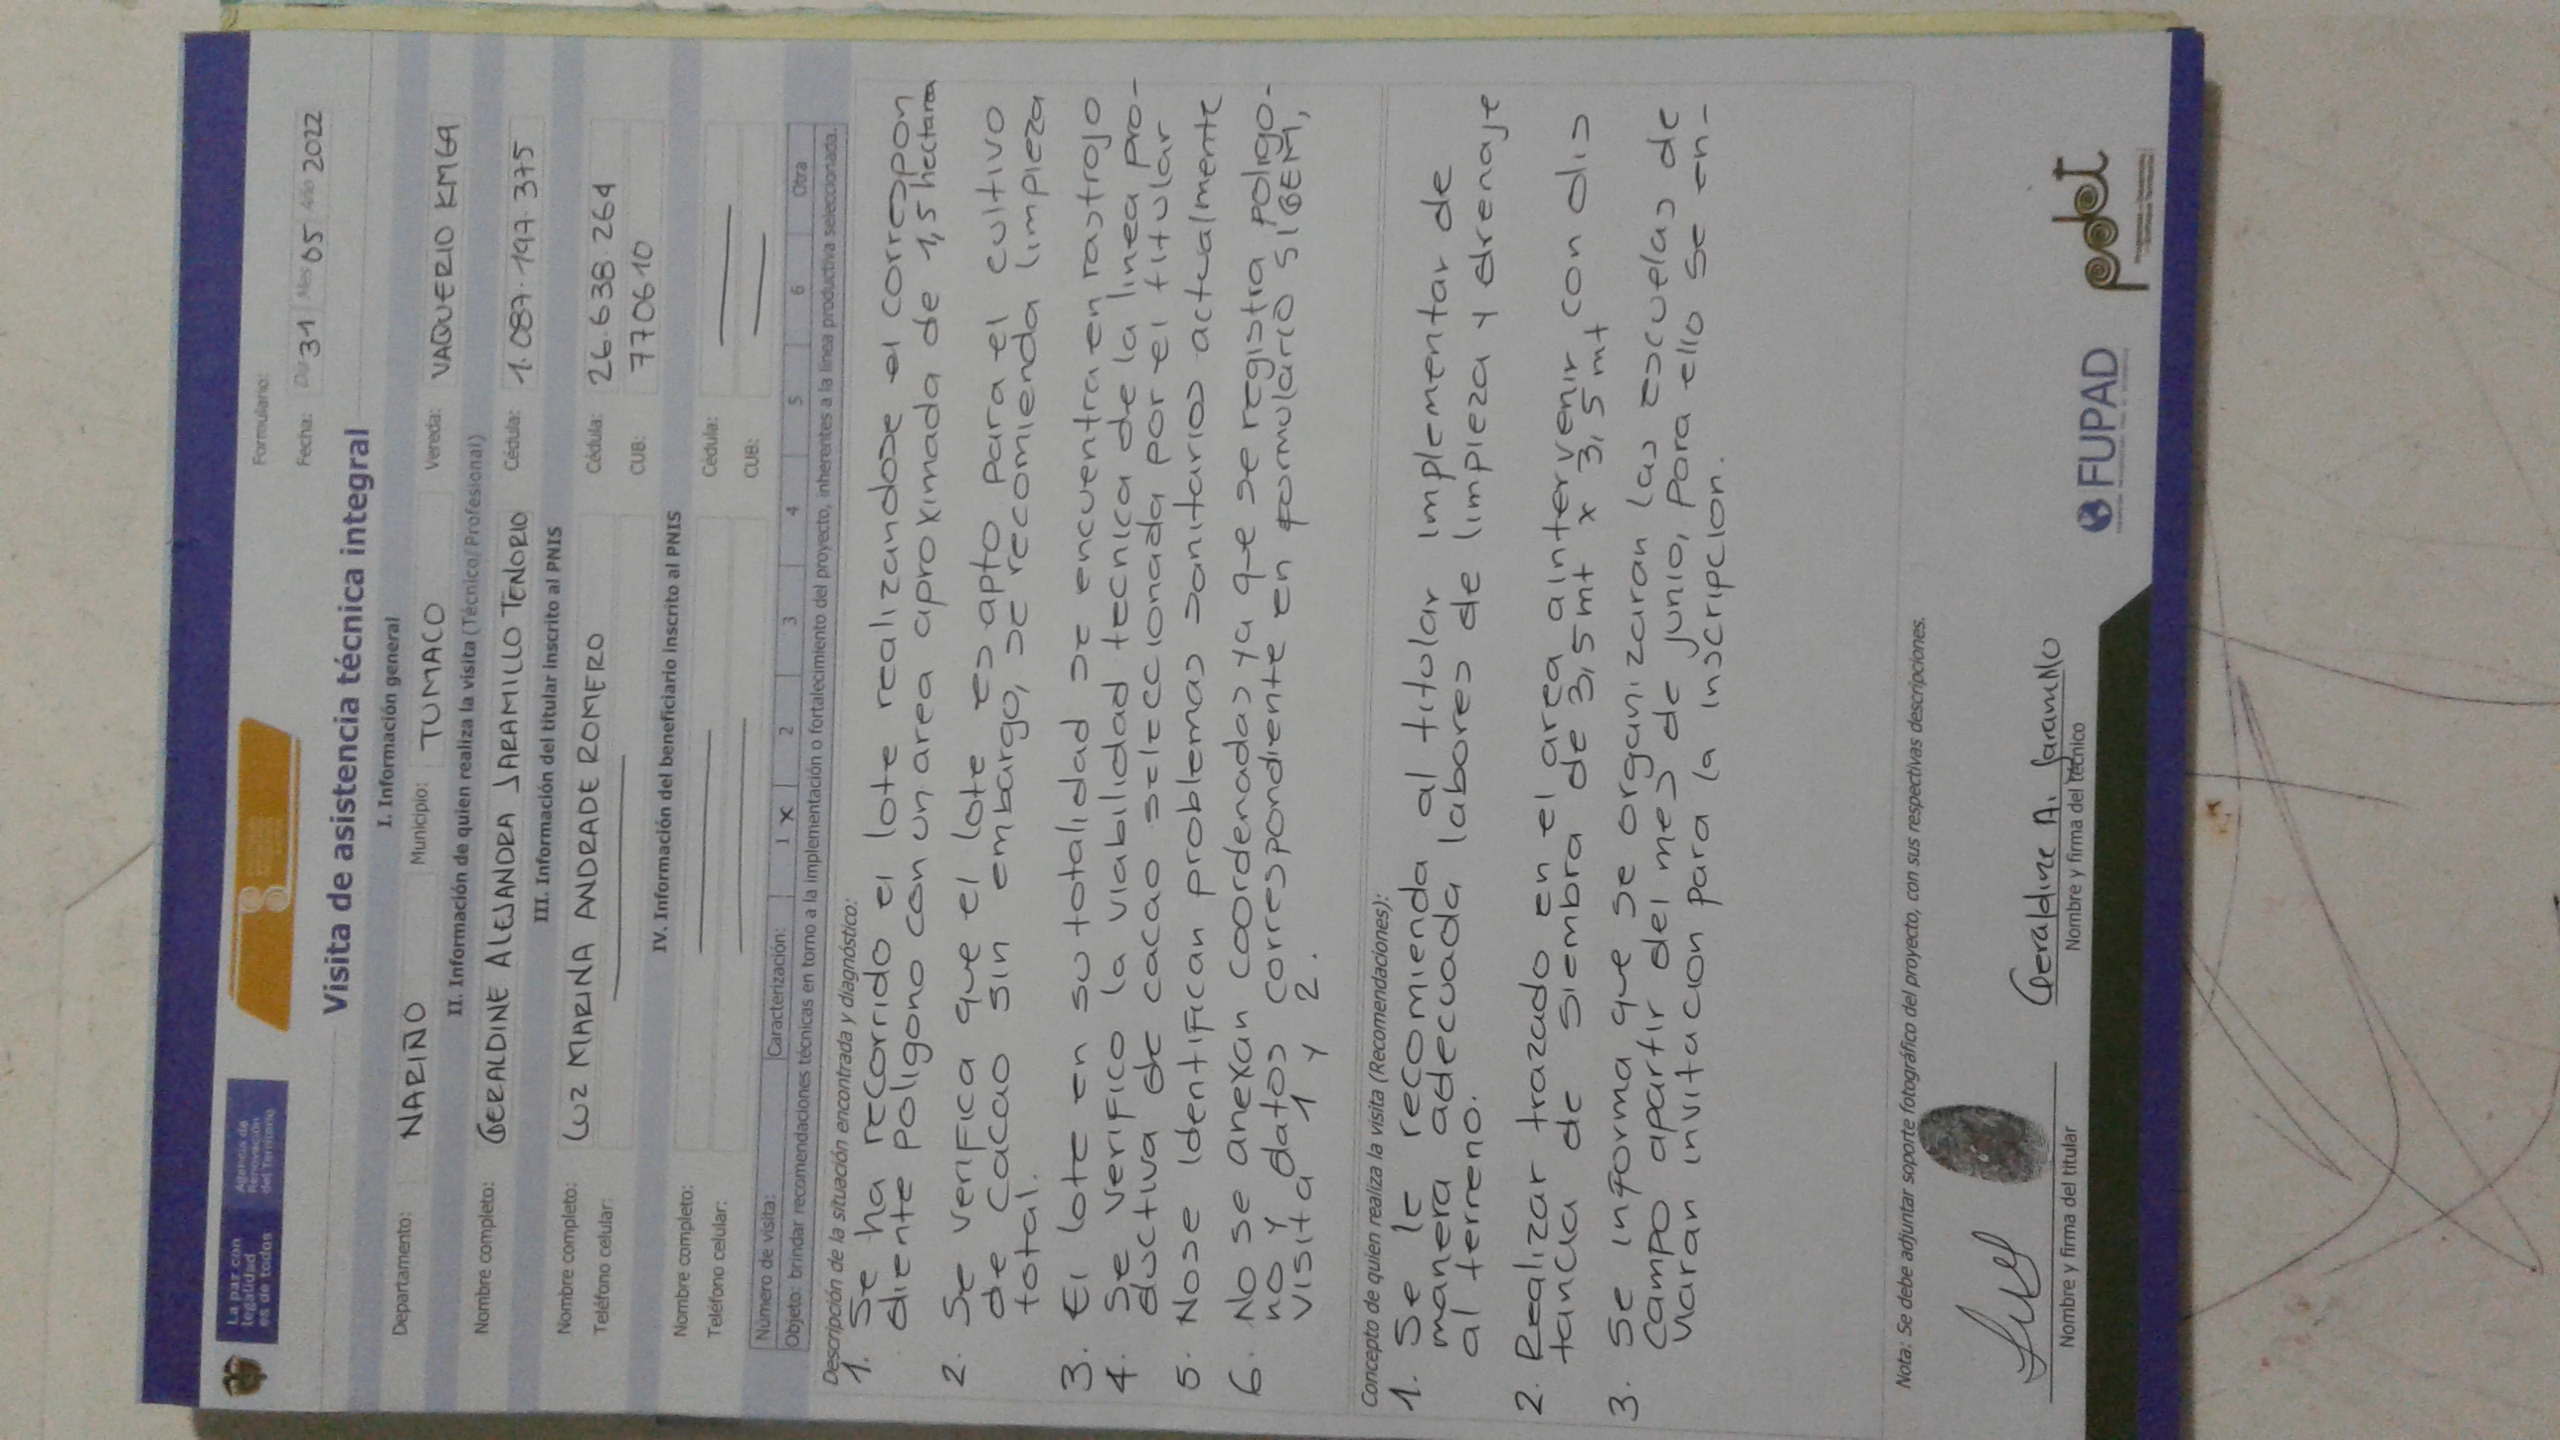 La paz con
legalidad
es de todos
Agencia de
Renovación
del Territorio
Formulario:
Fecha: Día 31 Mes 05 Año 2022
Visita de asistencia técnica integral
I. Información general
Departamento: NARIÑO Municipio: TUMACO Vereda: VAQUERIO KM69
II. Información de quien realiza la visita (Técnico/ Profesional)
Nombre completo: GERALDINE ALEJANDRA JARAMILLO TENORIO Cédula: 1.087.197.375
III. Información del titular inscrito al PNIS
Nombre completo: LUZ MARINA ANDRADE ROMERO Cédula: 26.638.264
Teléfono celular: CUB: 770610
IV. Información del beneficiario inscrito al PNIS
Nombre completo: Cédula:
Teléfono celular: CUB:
Número de visita: Caracterización: 1 X 2 3 4 5 6 Otra
Objeto: brindar recomendaciones técnicas en torno a la implementación o fortalecimiento del proyecto, inherentes a la línea productiva seleccionada.
Descripción de la situación encontrada y diagnóstico:
1. Se ha recorrido el lote realizandose el correspon
diente poligono con un area aproximada de 1,5 hectarea
2. Se verifica que el lote es apto para el cultivo
de cacao sin embargo, se recomienda limpieza
total.
3. El lote en su totalidad se encuentra en rastrojo
4. Se verifico la viabilidad tecnica de la linea pro-
ductiva de cacao seleccionada por el titular
5. Nose identifican problemas sanitarios actualmente
6. No se anexan coordenadas ya que se registra poligo-
no y datos correspondiente en formulario SIGEM,
visita 1 y 2.
Concepto de quien realiza la visita (Recomendaciones):
1. Se le recomienda al titular implementar de
manera adecuada labores de limpieza y drenaje
al terreno.
2. Realizar trazado en el area a intervenir con dis
tancia de siembra de 3,5 mt x 3,5 mt
3. Se informa que se organizaran las escuelas de
campo apartir del mes de junio, para ello se en-
viaran invitacion para la inscripcion.
Nota: Se debe adjuntar soporte fotográfico del proyecto, con sus respectivas descripciones.
Geraldine A. Jaramillo
Nombre y firma del titular Nombre y firma del técnico
FUPAD
pdet